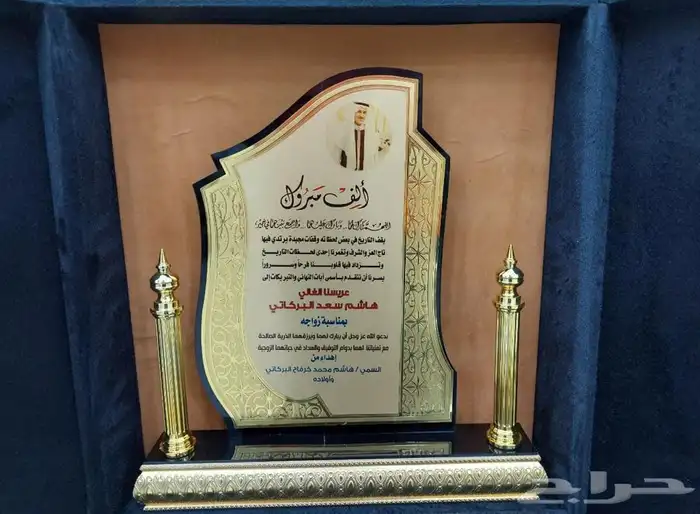 ألف مبروك
اللهم بارك لهما وبارك عليهما واجمع بينهما في خير
يقف التاريخ في بعض لحظاته وقفات مجيدة يرتدي فيها
تاج العز والشرف وتغمرنا إحدى لحظات التاريخ
وتزداد فيها قلوبنا فرحاً وسروراً
يسرنا أن نتقدم بأسمى آيات التهاني والتبريكات إلى
عريسنا الغالي
هاشم سعد البركاتي
بمناسبة زواجه
ندعو الله عز وجل أن يبارك لهما ويرزقهما الذرية الصالحة
مع تمنياتنا لهما بدوام التوفيق والسداد في حياتهما الزوجية
إهداء من
السمي / هاشم محمد خرفاج البركاتي
وأولاده
حراج